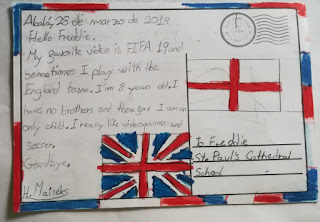 Abalá, 28 de marzo de 2019
Hello Freddie.
My favorite video is FIFA 19 and
sometimes I play with the
England team. I'm 8 years old. I
have no brothers and therefore I am an
only child. I really like videogames and
soccer.
Goodbye.
H.
To Freddie
St. Paul's Cathedral
School